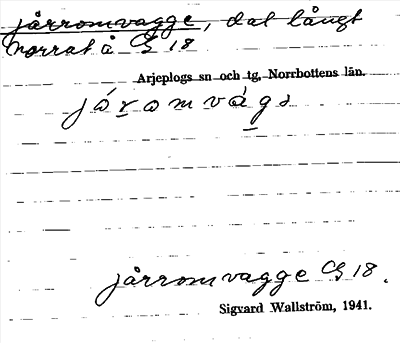 jårromvagge, dal långt
norrut å G 18
Arjeplogs sn och tg, Norrbottens län.
járomvágə
jårromvagge G 18.
Sigvard Wallström, 1941.